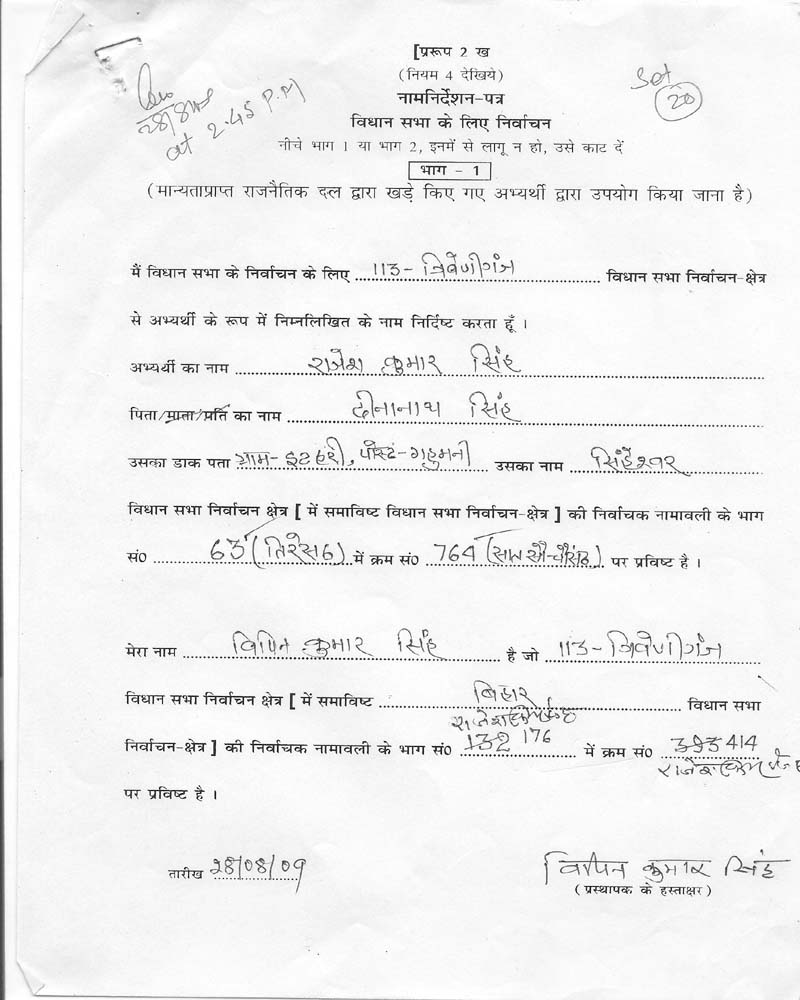 [प्ररूप 2 ख
(नियम 4 देखिये)
नामनिर्देशन-पत्र
विधान सभा के लिए निर्वाचन
28/8/09
at 2.45 P.M
Set
20
नीचे भाग 1 या भाग 2, इनमें से लागू न हो, उसे काट दें
भाग - 1
(मान्यताप्राप्त राजनैतिक दल द्वारा खड़े किए गए अभ्यर्थी द्वारा उपयोग किया जाना है)
मैं विधान सभा के निर्वाचन के लिए 113- त्रिवेणीगंज विधान सभा निर्वाचन-क्षेत्र
से अभ्यर्थी के रूप में निम्नलिखित के नाम निर्दिष्ट करता हूँ ।
अभ्यर्थी का नाम राजेश कुमार सिंह
पिता/माता/पति का नाम दीनानाथ सिंह
उसका डाक पता ग्राम- इटहरी, पोस्ट-गहुमनी उसका नाम सिंहेश्वर
विधान सभा निर्वाचन क्षेत्र [ में समाविष्ट विधान सभा निर्वाचन-क्षेत्र ] की निर्वाचक नामावली के भाग
सं० 63 (तिरेसठ) में क्रम सं० 764 (सात सौ चौंसठ) पर प्रविष्ट है ।
मेरा नाम विपिन कुमार सिंह है जो 113- त्रिवेणीगंज
विधान सभा निर्वाचन क्षेत्र [ में समाविष्ट बिहार विधान सभा
निर्वाचन-क्षेत्र ] की निर्वाचक नामावली के भाग सं० 132 176 में क्रम सं० 393 414
पर प्रविष्ट है ।
तारीख 28/08/09
विपिन कुमार सिंह
(प्रस्थापक के हस्ताक्षर)